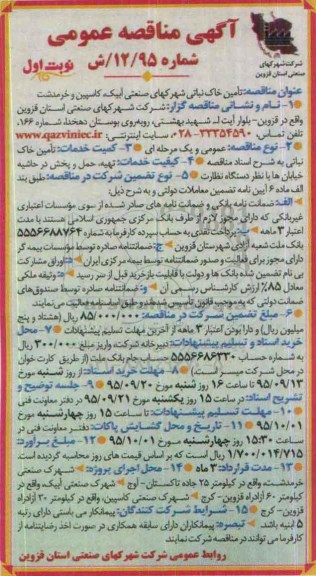 آگهی مناقصه عمومی
شماره ۱۲/۹۵/ش
نوبت اول
شرکت شهرکهای
صنعتی استان قزوین
عنوان مناقصه: تأمین خاک نباتی شهرکهای صنعتی آبیک، کاسپین و خرمدشت
۱- نام و نشانی مناقصه گزار: شرکت شهرکهای صنعتی استان قزوین
واقع در قزوین- بلوار آیت ا... شهید بهشتی، روبه‌روی بوستان دهخدا، شماره ۱۶۶،
تلفن تماس: ۳۳۳۵۴۵۹۰-۰۲۸ سایت اینترنتی: www.qazviniec.ir
۲- نوع مناقصه: عمومی و یک مرحله ای ۳- کمیت خدمات: تأمین خاک
نباتی به شرح اسناد مناقصه ۴- کیفیت خدمات: تهیه، حمل و پخش در حاشیه
خیابان ها با نظر دستگاه نظارت ۵- نوع تضمین شرکت در مناقصه: طبق بند
الف ماده ۶ آیین نامه تضمین معاملات دولتی و به شرح ذیل:
الف: ضمانت نامه بانکی و ضمانت نامه های صادر شده از سوی مؤسسات اعتباری
غیربانکی که دارای مجوز لازم از طرف بانک مرکزی جمهوری اسلامی هستند با مدت
اعتبار ۳ ماهه ب: پرداخت نقدی به حساب سپرده کارفرما به شماره ۵۵۵۶۶۸۸۷۶۴
بانک ملت شعبه آزادی شهرستان قزوین ج: ضمانتنامه صادره توسط مؤسسات بیمه گر
دارای مجوز برای فعالیت و صدور ضمانتنامه توسط بیمه مرکزی ایران د: اوراق مشارکت
بی نام تضمین شده بانک ها و دولت با قابلیت بازخرید قبل از سر رسید ه: وثیقه ملکی
معادل ۸۵٪ ارزش کارشناس رسمی آن و: ضمانتنامه صادره توسط صندوق‌های
ضمانت دولتی که به موجب قانون تأسیس شده‌اند و طبق اساسنامه فعالیت می‌نمایند
۶- مبلغ تضمین شرکت در مناقصه: ۸۵/۰۰۰/۰۰۰ ریال (هشتاد و پنج
میلیون ریال) و دارا بودن اعتبار ۳ ماهه از آخرین مهلت تسلیم پیشنهادات ۷- محل
خرید اسناد و تسلیم پیشنهادات: دبیرخانه شرکت، واریز مبلغ ۳۰۰/۰۰۰ ریال
به شماره حساب ۵۵۵۶۶۸۶۳۳۰ حساب جام بانک ملت (از طریق کارت خوان
در محل شرکت میسر است) ۸- مهلت خرید اسناد: از روز شنبه مورخ
۹۵/۰۹/۱۳ تا ساعت ۱۶ روز شنبه مورخ ۹۵/۰۹/۲۰ ۹- جلسه توضیح و
تشریح اسناد: در ساعت ۱۵ روز یکشنبه مورخ ۹۵/۰۹/۲۱ در دفتر معاونت فنی
۱۰- مهلت تسلیم پیشنهادات: تا ساعت ۱۵ روز چهارشنبه مورخ
۹۵/۱۰/۰۱ ۱۱- تاریخ و محل گشایش پاکات: دفتر معاونت فنی در
ساعت ۱۵:۳۰ روز چهارشنبه مورخ ۹۵/۱۰/۰۱ ۱۲- مبلغ برآورد:
۱/۷۰۰/۰۱۴/۷۱۵ ریال است که بر اساس قیمت های روز محاسبه گردیده است.
۱۳- مدت قرارداد: ۳ ماه ۱۴- محل اجرای پروژه: شهرک صنعتی
خرمدشت، واقع در کیلومتر ۲۵ جاده تاکستان- آوج شهرک صنعتی آبیک، واقع در
کیلومتر ۶۰ آزادراه قزوین- کرج شهرک صنعتی کاسپین، واقع در کیلومتر ۲۰ آزادراه
قزوین- کرج ۱۵- شرایط شرکت کنندگان: پیمانکار می بایستی دارای رتبه
۵ ابنیه باشد. تبصره: پیمانکاران دارای سابقه همکاری در صورت اخذ رضایتنامه از
کارفرما می توانند در مناقصه شرکت نمایند.
روابط عمومی شرکت شهرکهای صنعتی استان قزوین